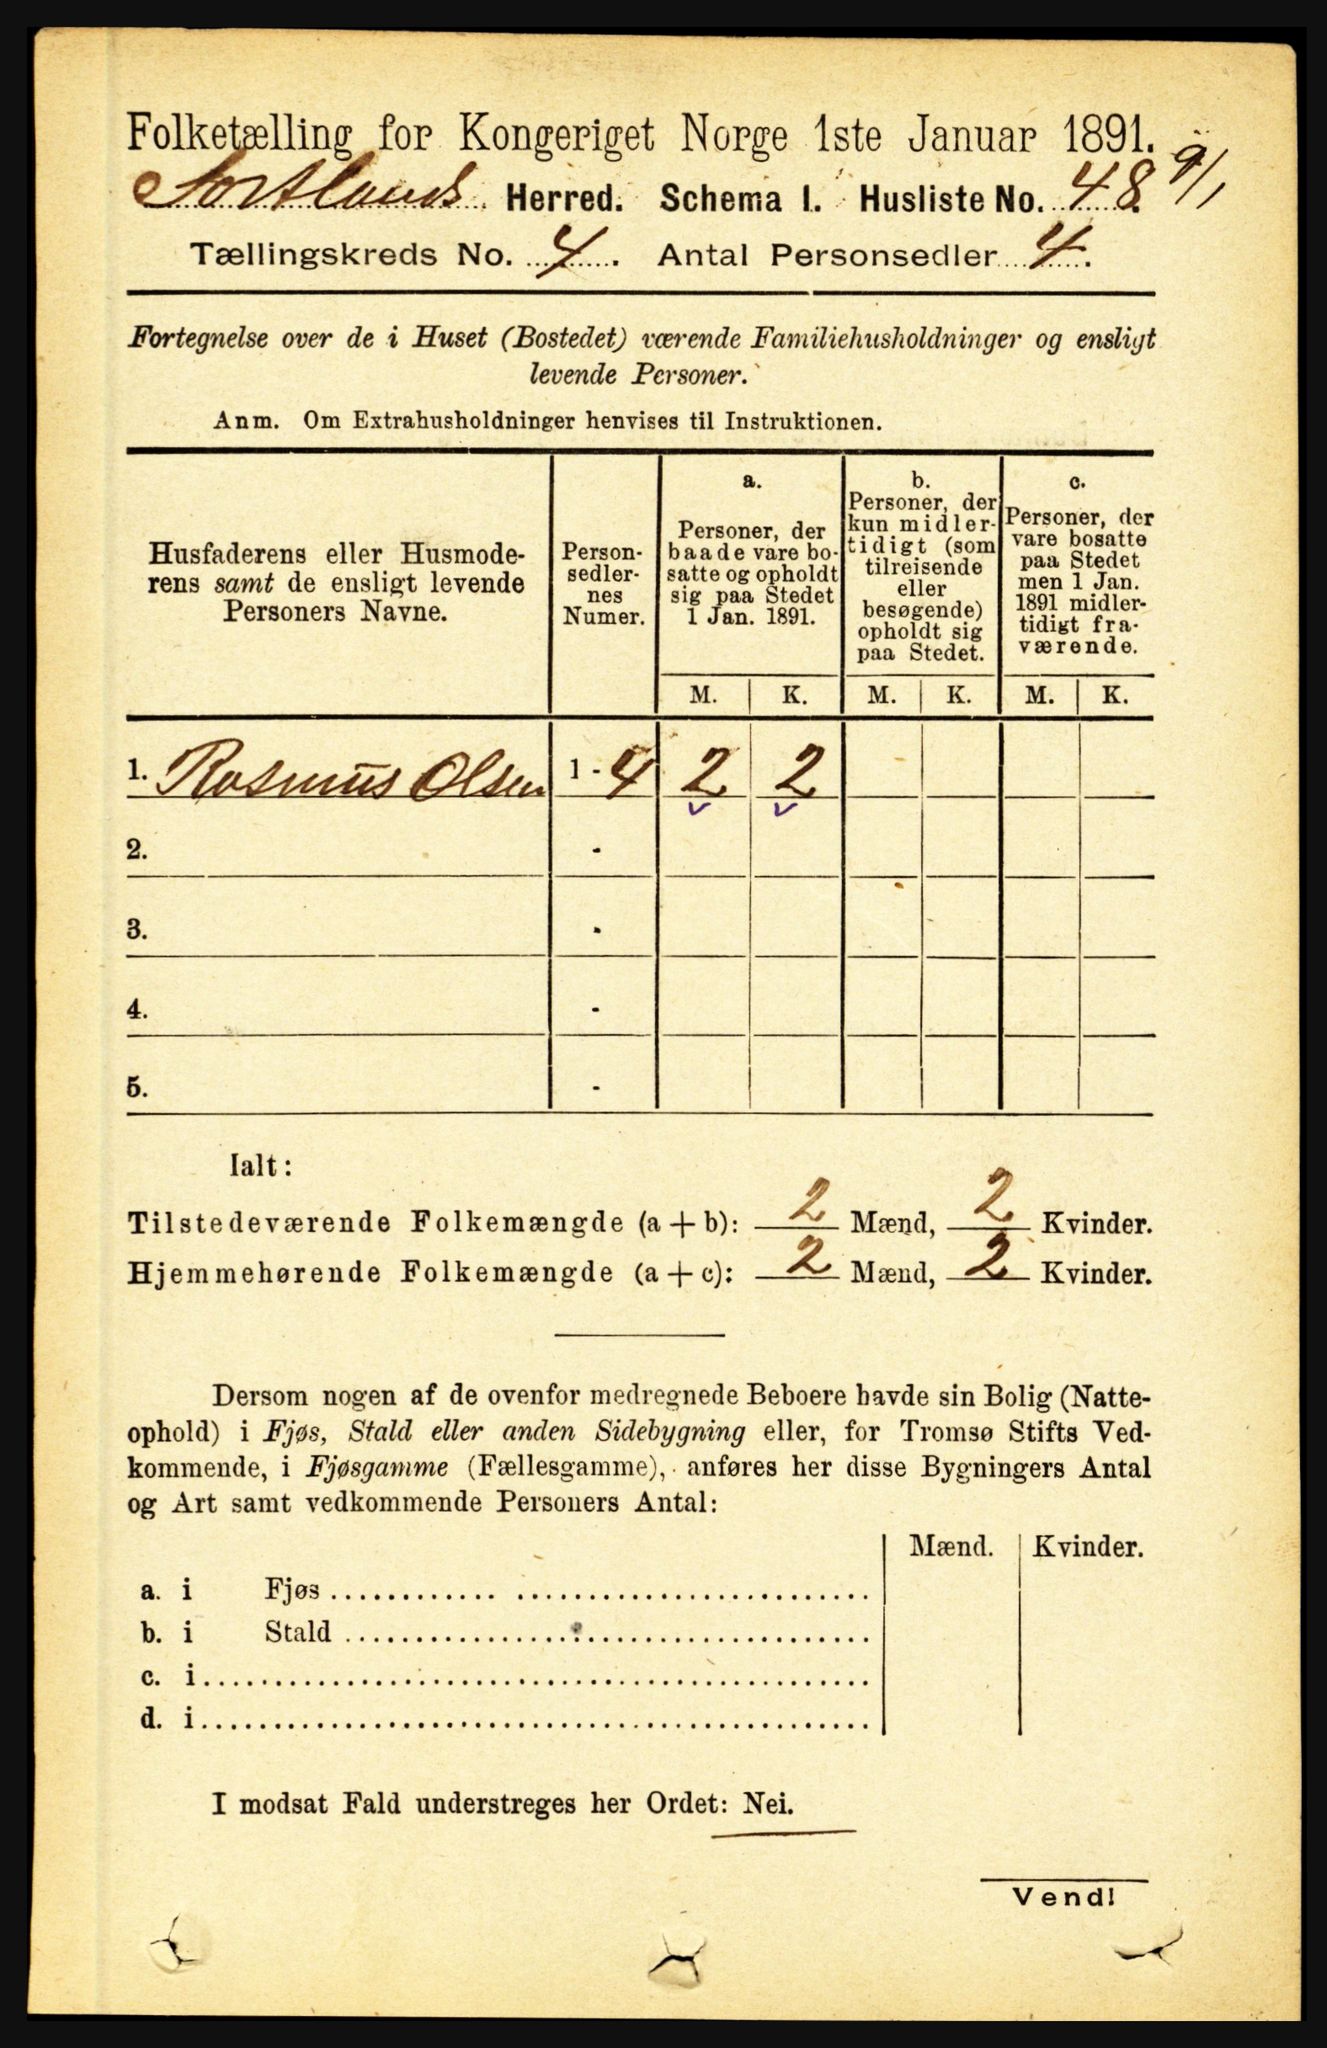 Folketælling for Kongeriget Norge 1ste Januar 1891.
Sortlands Herred. Schema I. Husliste No. 48. 9/1
Tællingskreds No. 4. Antal Personsedler 4.
Fortegnelse over de i Huset (Bostedet) værende Familiehusholdninger og ensligt
levende Personer.
Anm. Om Extrahusholdninger henvises til Instruktionen.
Husfaderens eller Husmode-
rens samt de ensligt levende
Personers Navne.
Person-
sedler-
nes
Numer.
a.
Personer, der
baade vare bo-
satte og opholdt
sig paa Stedet
1 Jan. 1891.
b.
Personer, der
kun midler-
tidigt (som
tilreisende
eller
besøgende)
opholdt sig
paa Stedet.
c.
Personer, der
vare bosatte
paa Stedet
men 1 Jan.
1891 midler-
tidigt fra-
værende.
M. K. M. K. M. K.
1. Rasmus Olsen 1 - 4 2 2
2. -
3. -
4. -
5. -
Ialt:
Tilstedeværende Folkemængde (a + b): 2 Mænd, 2 Kvinder.
Hjemmehørende Folkemængde (a + c): 2 Mænd, 2 Kvinder.
Dersom nogen af de ovenfor medregnede Beboere havde sin Bolig (Natte-
ophold) i Fjøs, Stald eller anden Sidebygning eller, for Tromsø Stifts Ved-
kommende, i Fjøsgamme (Fællesgamme), anføres her disse Bygningers Antal
og Art samt vedkommende Personers Antal:
Mænd. Kvinder.
a. i Fjøs
b. i Stald
c. i
d. i
I modsat Fald understreges her Ordet: Nei.
Vend!